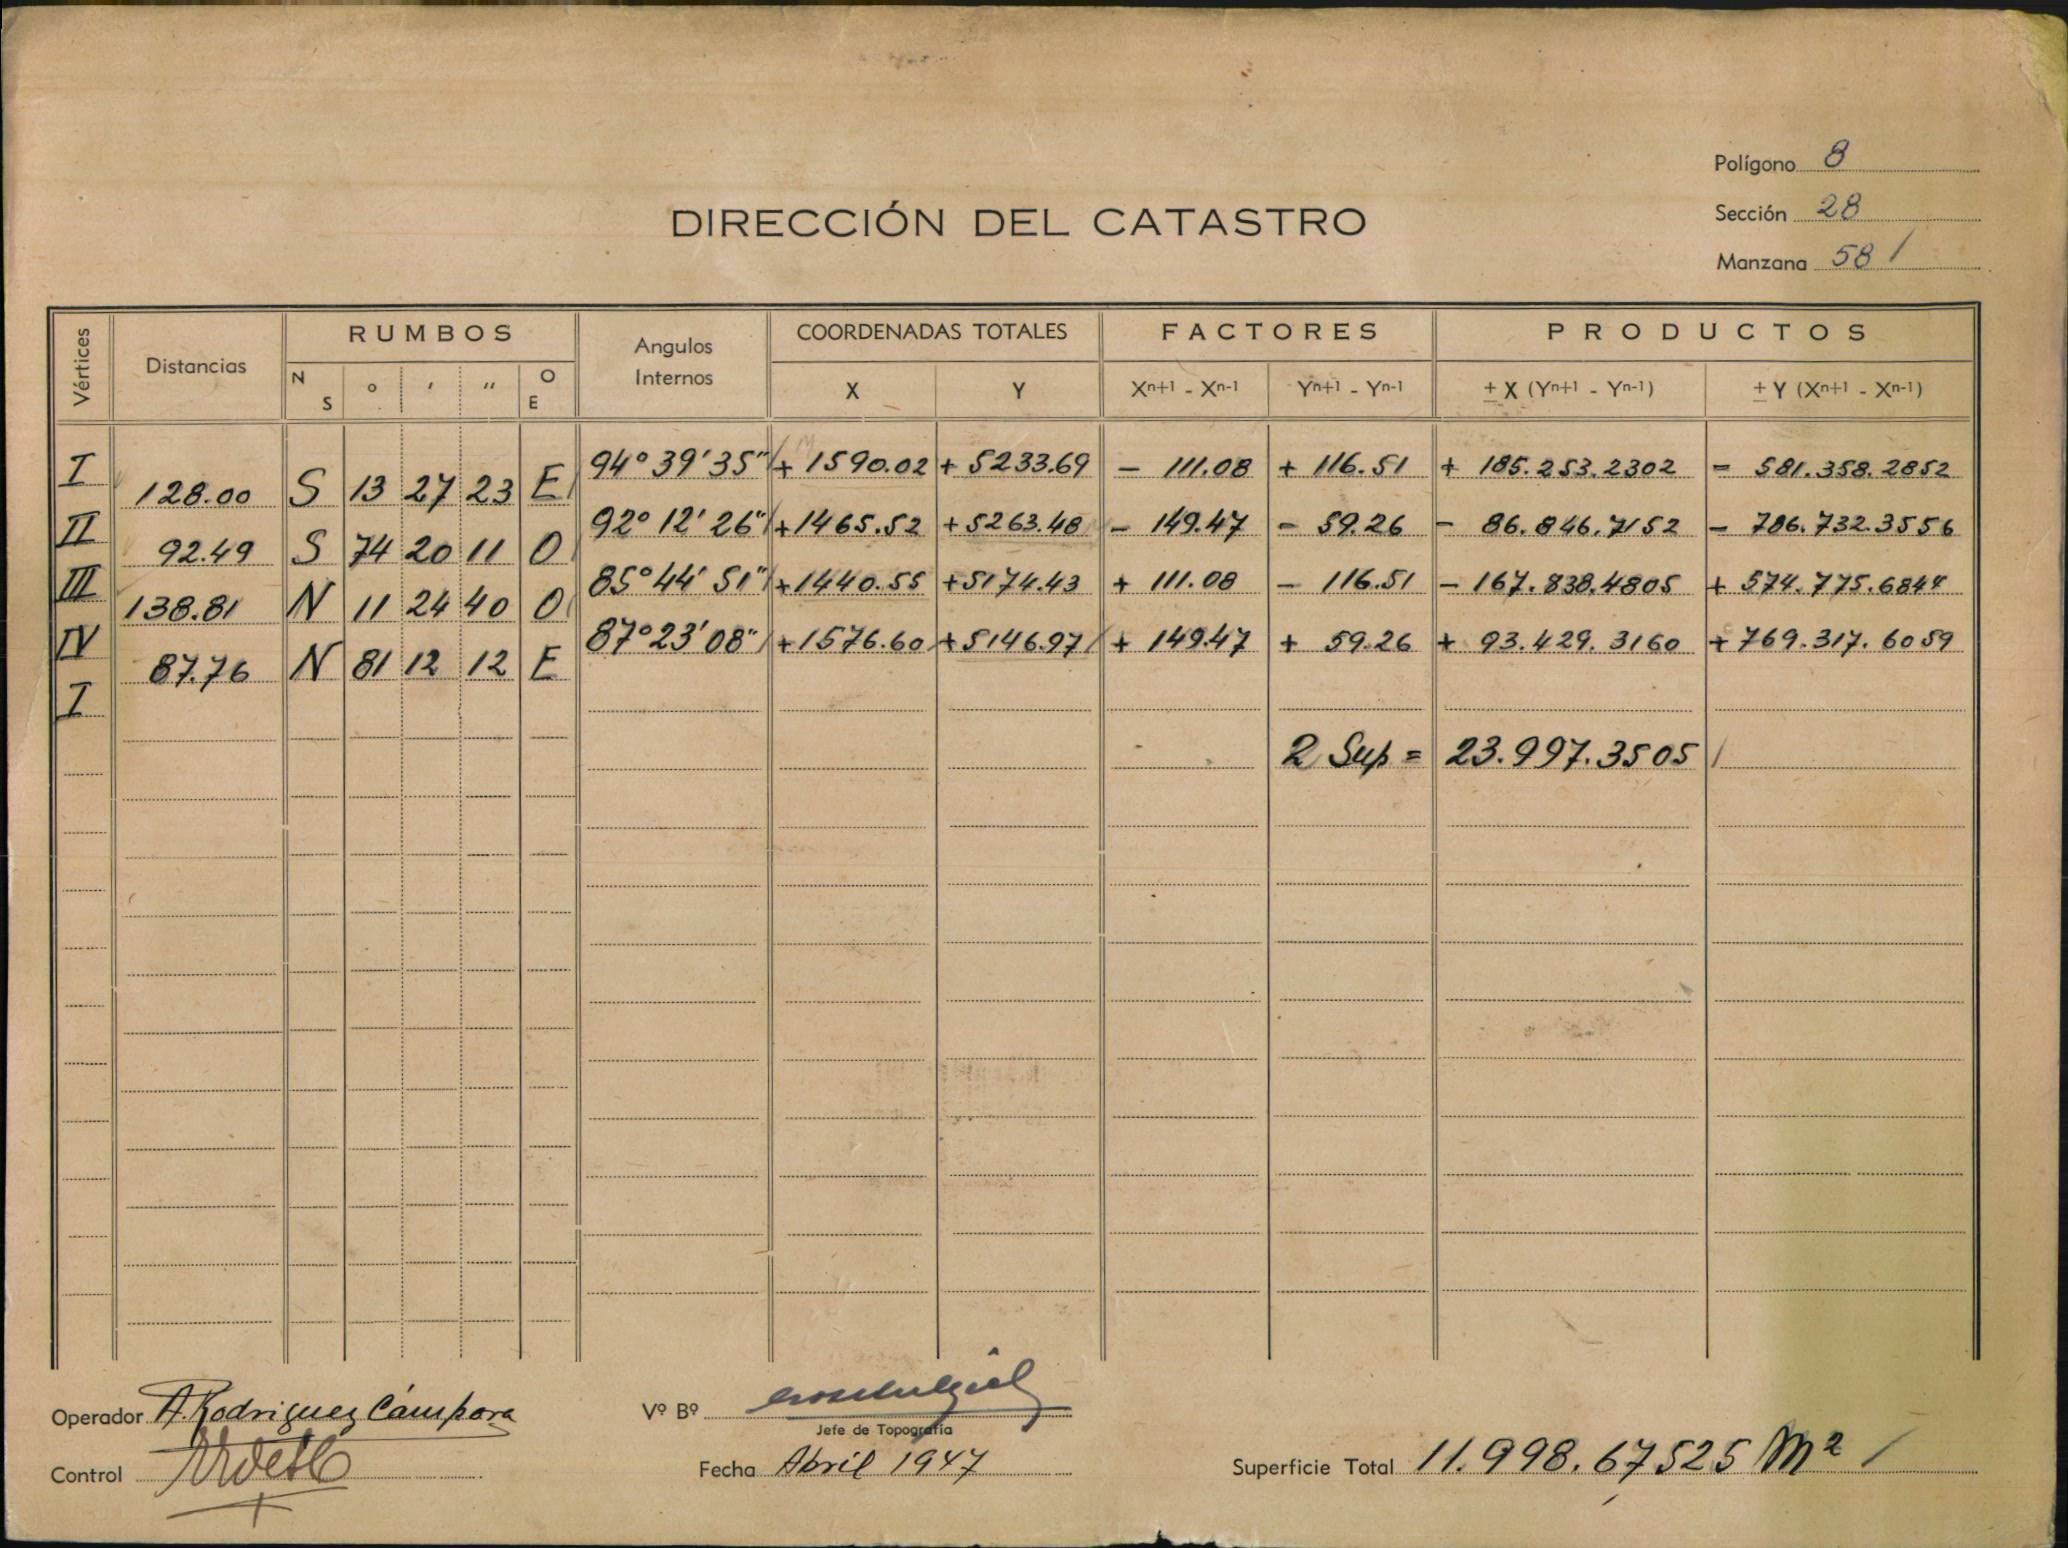 Polígono 8
DIRECCIÓN DEL CATASTRO
Sección 28
Manzana 58 /
Vértices Distancias RUMBOS Angulos Internos COORDENADAS TOTALES FACTORES PRODUCTOS
N S ° ′ ″ O E X Y Xn+1 - Xn-1 Yn+1 - Yn-1 ± X (Yn+1 - Yn-1) ± Y (Xn+1 - Xn-1)
I 94° 39' 35" + 1590.02 + 5233.69 - 111.08 + 116.51 + 185.253.2302 - 581.358.2852
128.00 S 13 27 23 E
II 92° 12' 26" + 1465.52 + 5263.48 - 149.47 - 59.26 - 86.846.7152 - 786.732.3556
92.49 S 74 20 11 O
III 85° 44' 51" + 1440.55 + 5174.43 + 111.08 - 116.51 - 167.838.4805 + 574.775.6844
138.81 N 11 24 40 O
IV 87° 23' 08" + 1576.60 + 5146.97 + 149.47 + 59.26 + 93.429.3160 + 769.317.6059
87.76 N 81 12 12 E
I
2 Sup = 23.997.3505 /
Operador A. Rodriguez Cámpora
Vº Bº
Jefe de Topografía
Control
Fecha Abril 1947
Superficie Total 11.998.67525 M² /